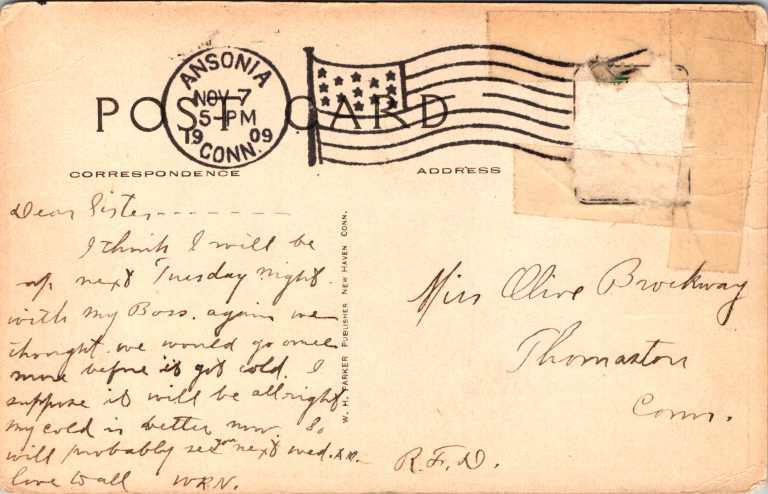 ANSONIA
NOV 7
5-PM
1909
CONN.
POST CARD
CORRESPONDENCE
ADDRESS
Dear Sister - - - - - - -
I think I will be
up next Tuesday night
with my Boss. again we
thought we would go once
more before it got cold. I
suppose it will be allright
my cold is better now. So
will probably see you next wed. A.M.
love to all W.R.N.
W. H. PARKER PUBLISHER NEW HAVEN CONN.
Miss Olive Brockway
Thomaston
Conn.
R.F.D.